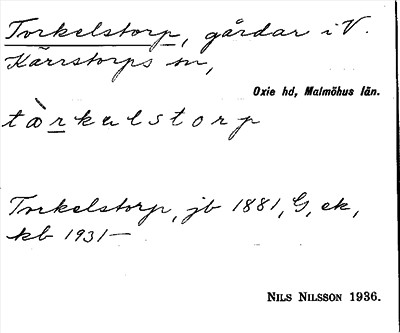 Torkelstorp, gårdar i V.
Kärrstorps sn,
Oxie hd, Malmöhus län.
tòrkelstorp
Torkelstorp, jb 1881, G, ek,
kb 1931—
NILS NILSSON 1936.